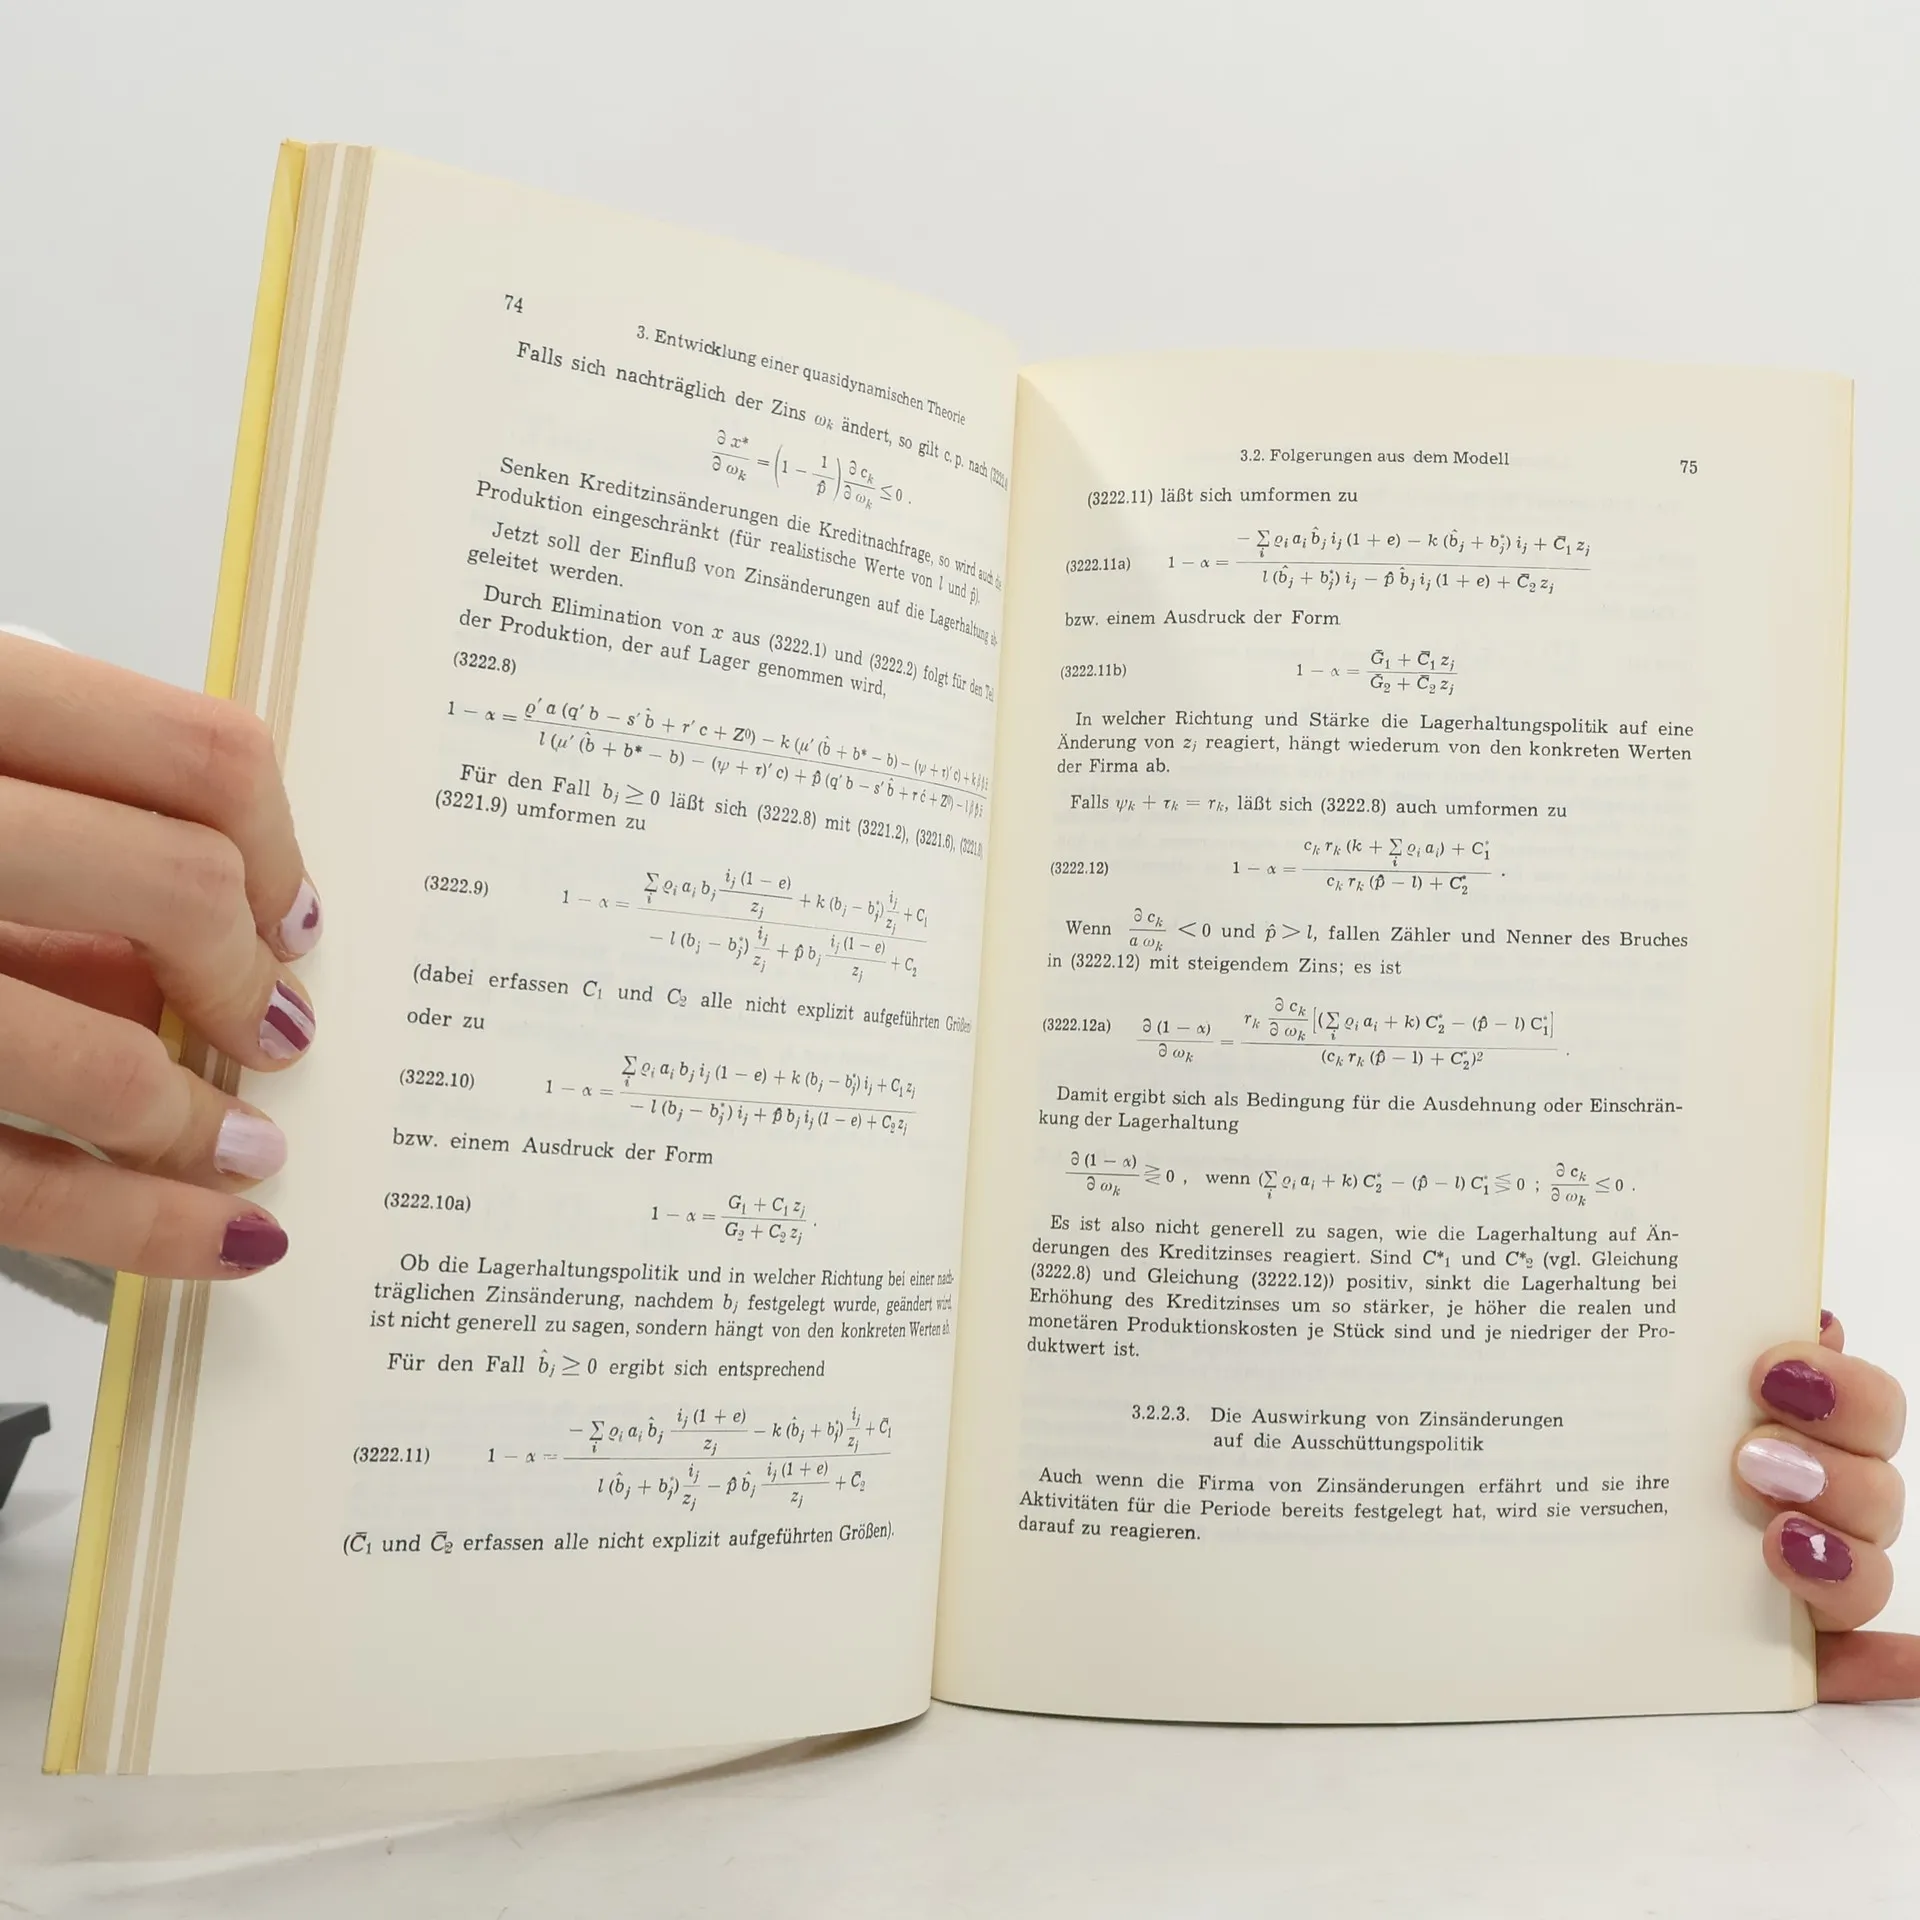 74
3. Entwicklung einer quasidynamischen Theorie
Falls sich nachträglich der Zins ωₖ ändert, so gilt c. p. nach
∂ x* / ∂ ωₖ = (1 − 1 / p̂) ∂ cₖ / ∂ ωₖ ≤ 0 .
Senken Kreditzinsänderungen die Kreditnachfrage, so wird auch die
Produktion eingeschränkt (für realistische Werte von l und p̂).
Jetzt soll der Einfluß von Zinsänderungen auf die Lagerhaltung ab-
geleitet werden.
Durch Elimination von x aus (3222.1) und (3222.2) folgt für den Teil
der Produktion, der auf Lager genommen wird,
(3222.8)
1 − α = ϱ′ a (q′ b − s′ b̂ + r′ c + Z⁰) − k (μ′ (b̂ + b* − b) − (ψ + τ)′ c) + k
l (μ′ (b̂ + b* − b) − (ψ + τ)′ c) + p̂ (q′ b − s′ b̂ + r′ c + Z⁰) − l
Für den Fall bⱼ ≥ 0 läßt sich (3222.8) mit (3221.2), (3221.6),
(3221.9) umformen zu
(3222.9) 1 − α = (∑ᵢ ϱᵢ aᵢ bⱼ iⱼ (1 − e) / zⱼ + k (bⱼ − bⱼ*) iⱼ / zⱼ + C₁) / (− l (bⱼ − bⱼ*) iⱼ / zⱼ + p̂ bⱼ iⱼ (1 − e) / zⱼ + C₂)
(dabei erfassen C₁ und C₂ alle nicht explizit aufgeführten Größen)
oder zu
(3222.10) 1 − α = (∑ᵢ ϱᵢ aᵢ bⱼ iⱼ (1 − e) + k (bⱼ − bⱼ*) iⱼ + C₁ zⱼ) / (− l (bⱼ − bⱼ*) iⱼ + p̂ bⱼ iⱼ (1 − e) + C₂ zⱼ)
bzw. einem Ausdruck der Form
(3222.10a) 1 − α = (G₁ + C₁ zⱼ) / (G₂ + C₂ zⱼ) .
Ob die Lagerhaltungspolitik und in welcher Richtung bei einer nach-
träglichen Zinsänderung, nachdem bⱼ festgelegt wurde, geändert wird,
ist nicht generell zu sagen, sondern hängt von den konkreten Werten ab.
Für den Fall b̂ⱼ ≥ 0 ergibt sich entsprechend
(3222.11) 1 − α = (− ∑ᵢ ϱᵢ aᵢ b̂ⱼ iⱼ (1 + e) / zⱼ − k (b̂ⱼ + bⱼ*) iⱼ / zⱼ + C̄₁) / (l (b̂ⱼ + bⱼ*) iⱼ / zⱼ − p̂ b̂ⱼ iⱼ (1 + e) / zⱼ + C̄₂)
(C̄₁ und C̄₂ erfassen alle nicht explizit aufgeführten Größen).
3.2. Folgerungen aus dem Modell 75
(3222.11) läßt sich umformen zu
(3222.11a) 1 − α = (− ∑ᵢ ϱᵢ aᵢ b̂ⱼ iⱼ (1 + e) − k (b̂ⱼ + bⱼ*) iⱼ + C̄₁ zⱼ) / (l (b̂ⱼ + bⱼ*) iⱼ − p̂ b̂ⱼ iⱼ (1 + e) + C̄₂ zⱼ)
bzw. einem Ausdruck der Form
(3222.11b) 1 − α = (Ḡ₁ + C̄₁ zⱼ) / (Ḡ₂ + C̄₂ zⱼ)
In welcher Richtung und Stärke die Lagerhaltungspolitik auf eine
Änderung von zⱼ reagiert, hängt wiederum von den konkreten Werten
der Firma ab.
Falls ψₖ + τₖ = rₖ, läßt sich (3222.8) auch umformen zu
(3222.12) 1 − α = (cₖ rₖ (k + ∑ᵢ ϱᵢ aᵢ) + C₁*) / (cₖ rₖ (p̂ − l) + C₂*) .
Wenn ∂ cₖ / a ωₖ < 0 und p̂ > l, fallen Zähler und Nenner des Bruches
in (3222.12) mit steigendem Zins; es ist
(3222.12a) ∂ (1 − α) / ∂ ωₖ = rₖ ∂ cₖ / ∂ ωₖ [(∑ᵢ ϱᵢ aᵢ + k) C₂* − (p̂ − l) C₁*] / (cₖ rₖ (p̂ − l) + C₂*)² .
Damit ergibt sich als Bedingung für die Ausdehnung oder Einschrän-
kung der Lagerhaltung
∂ (1 − α) / ∂ ωₖ ⋛ 0 , wenn (∑ᵢ ϱᵢ aᵢ + k) C₂* − (p̂ − l) C₁* ⋚ 0 ; ∂ cₖ / ∂ ωₖ ≤ 0 .
Es ist also nicht generell zu sagen, wie die Lagerhaltung auf Än-
derungen des Kreditzinses reagiert. Sind C*₁ und C*₂ (vgl. Gleichung
(3222.8) und Gleichung (3222.12)) positiv, sinkt die Lagerhaltung bei
Erhöhung des Kreditzinses um so stärker, je höher die realen und
monetären Produktionskosten je Stück sind und je niedriger der Pro-
duktwert ist.
3.2.2.3. Die Auswirkung von Zinsänderungen
auf die Ausschüttungspolitik
Auch wenn die Firma von Zinsänderungen erfährt und sie ihre
Aktivitäten für die Periode bereits festgelegt hat, wird sie versuchen,
darauf zu reagieren.